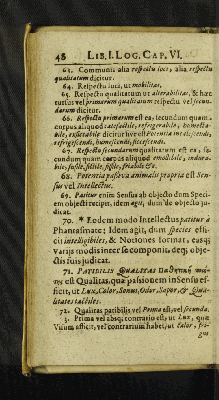 48 LIB. I. LOG. CAP. VI.
63. Communis alia respectu loci, alia respectu
qualitatum dicitur.
64. Respectu loci, ut mobilitas.
65. Respectu qualitatum ut alterabilitas, & hæc
rursus vel primarum qualitatum respectu vel secun-
darum dicitur.
66. Respectu primarum est ea, secundum quam
corpus aliquod calefactile, refrigerabile, humecta-
bile, exsiccabile dicitur sive est Potentia incalescendi,
refrigescendi, humescendi, siccescendi.
67. Respectu secundarum qualitatum est ea, se-
cundum quam corpus aliquod emollibile, indura-
bile, fusile, sectile, fissile, friabile &c.
68. Potentia passiva animalis propria est Sen-
sus vel Intellectus.
69. Patitur enim Sensus ab objecto dum Speci-
em objecti recipit, idem agit, dum de objecto judi-
cat.
70. * Eodem modo Intellectus patitur à
Phantasmate: Idem agit, dum species effi-
cit intelligibiles, & Notiones format, easq;
variis modis inter se componit, deq; objec-
tis suis judicat.
71. PATIBILIS QUALITAS
est Qualitas, quæ passionem in Sensu ef-
ficit, ut Lux, Calor, Sonus, Odor, Sapor, & Qua-
litates tactiles.
72. Qualitas patibilis vel Prima est, vel secunda.
73. Prima vel absq; contrario est, ut Lux, quæ
Visum efficit, vel contrarium habet, ut calor, fri-
gus